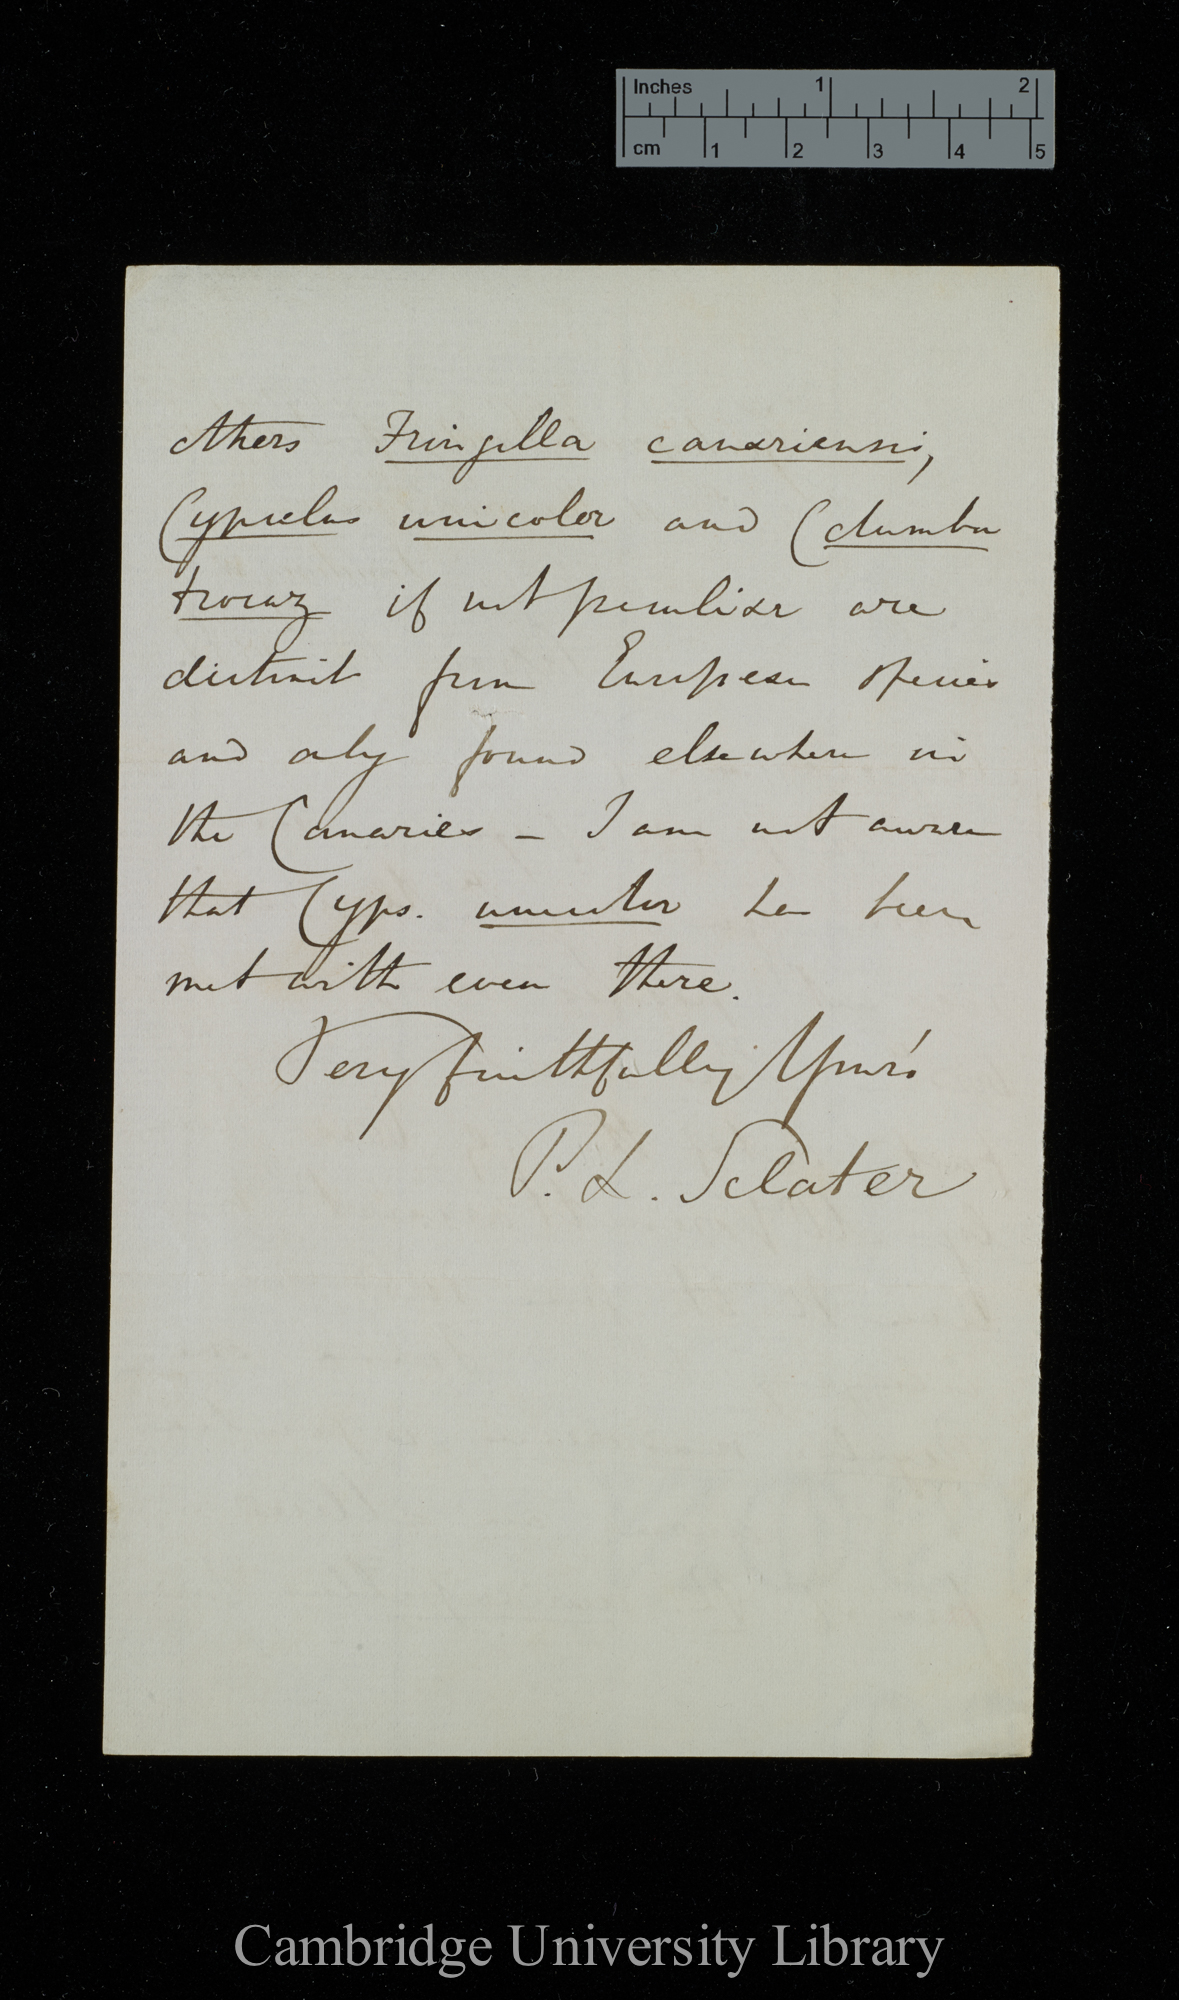 Inches 1 2
cm 1 2 3 4 5
others Fringilla canariensis,
Cypselus unicolor and Columba
trocaz if not peculiar are
distinct from European species
and only found elsewhere in
the Canaries – I am not aware
that Cyps. unicolor has been
met with even there.
Very faithfully Yours
P. L. Sclater
Cambridge University Library